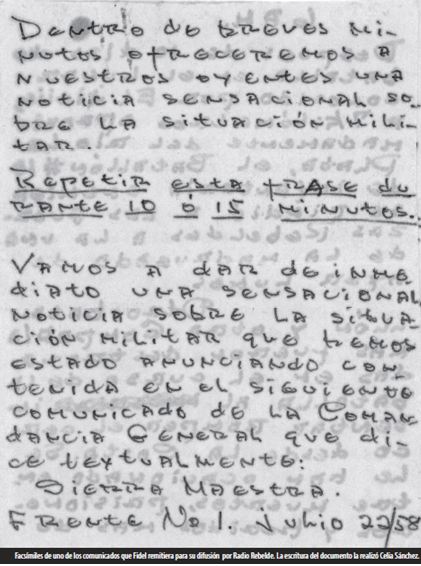 Dentro de breves mi-
nutos ofreceremos a
nuestros oyentes una
noticia sensacional so-
bre la situación mili-
tar.
Repetir esta frase du
rante 10 ó 15 minutos.
Vamos a dar de inme
diato una sensacional
noticia sobre la situa-
ción militar que hemos
estado anunciando con-
tenida en el siguiente
comunicado de la Coman
dancia General que di-
ce textualmente:
Sierra Maestra.
Frente No 1. Julio 22/58
Facsímiles de uno de los comunicados que Fidel remitiera para su difusión por Radio Rebelde. La escritura del documento la realizó Celia Sánchez.